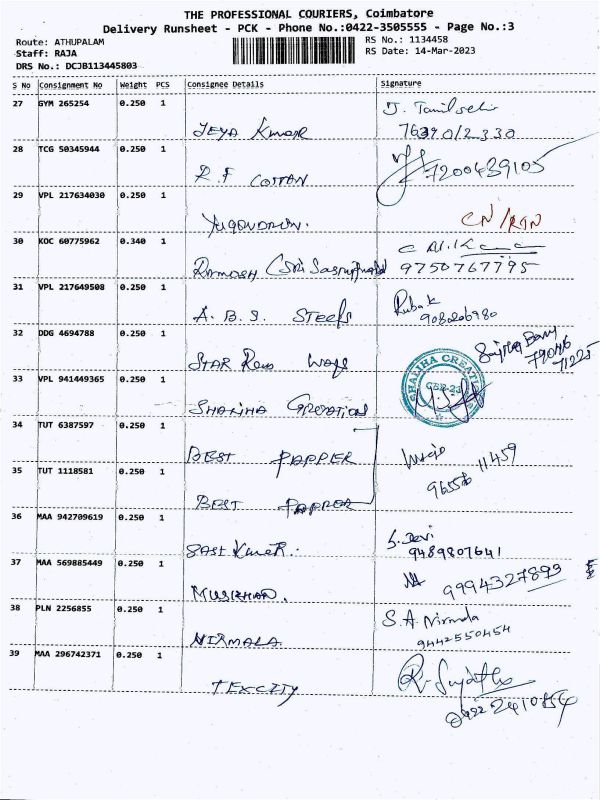 THE PROFESSIONAL COURIERS, Coimbatore
Delivery Runsheet - PCK - Phone No.:0422-3505555 - Page No.:3
Route: ATHUPALAM
RS No.: 1134458
Staff: RAJA
RS Date: 14-Mar-2023
DRS No.: DCJB113445803
S No Consignment No Weight PCS Consignee Details Signature
27 GYM 265254 0.250 1
JEYA Kumar
28 TCG 50345944 0.250 1
R.F COTTON 7200439105
29 VPL 217634030 0.250 1
CN/RTN
30 KOC 60775962 0.340 1
9750767795
31 VPL 217649508 0.250 1
A.B.S. STEELS
32 DDG 4694788 0.250 1
STAR
33 VPL 941449365 0.250 1
SHALIHA CREATION
CBE-23
34 TUT 6387597 0.250 1
BEST PAPPER
35 TUT 1118581 0.250 1
BEST PAPPER
36 MAA 942709619 0.250 1
S. Devi
SASI Kumar. 9489807641
37 MAA 569885449 0.250 1
9994327899
38 PLN 2256855 0.250 1
S.A Nirmala
NIRMALA 9442550454
39 MAA 296742371 0.250 1
TEXCITY